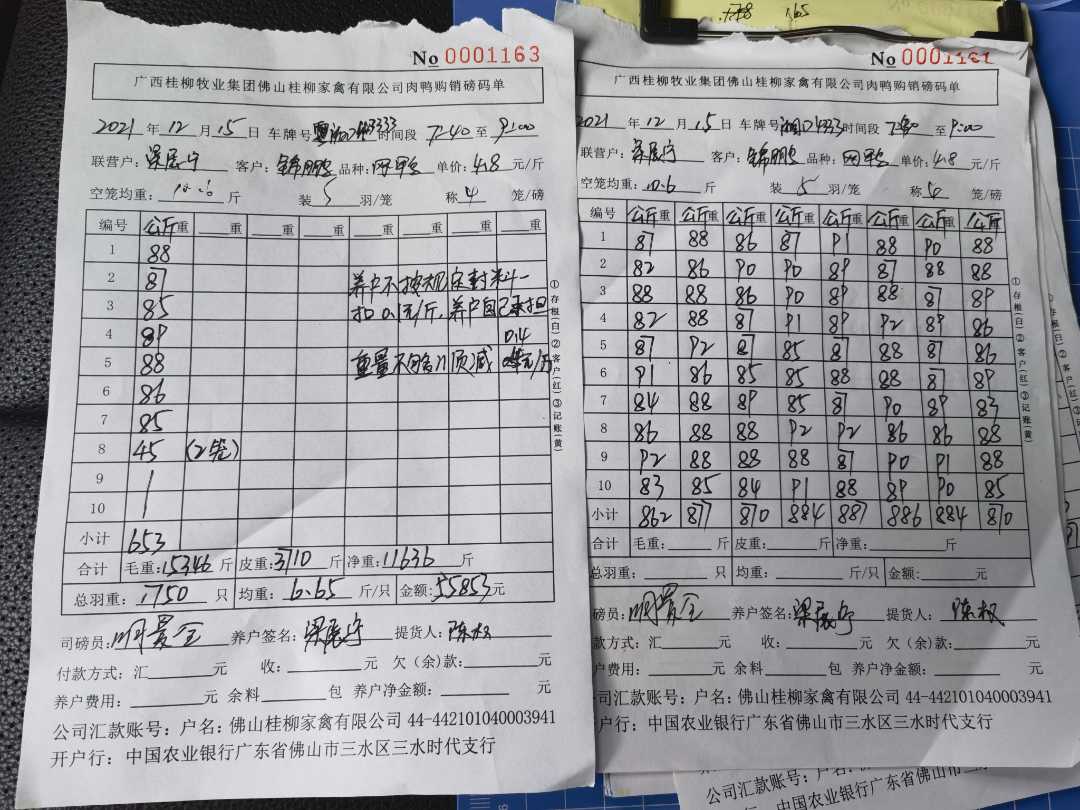 No 0001163
广西桂柳牧业集团佛山桂柳家禽有限公司肉鸭购销磅码单
2021 年 12 月 15 日 车牌号 时间段 7:40 至 9:00
联营户: 梁展宁 客户: 锦鹏 品种: 网鸭 单价: 4.8 元/斤
空笼均重: 10.6 斤 装 5 羽/笼 称 4 笼/磅
编号 公斤重 重 重 重 重 重 重 重
1 88
2 87 养户不按规定封料一
3 85 扣0.1元/斤,养户自己承担
4 89 0.4
5 88 重量不够 须减
6 86
7 85
8 45 (2笼)
9
10
小计 653
合计 毛重: 15346 斤 皮重: 3710 斤 净重: 11636 斤
总羽重: 1750 只 均重: 6.65 斤/只 金额: 55853 元
司磅员: 养户签名: 梁展宁 提货人: 陈权
付款方式: 汇 元 收: 元 欠(余)款: 元
养户费用: 元 余料 包 养户净金额: 元
公司汇款账号: 户名: 佛山桂柳家禽有限公司 44-442101040003941
开户行: 中国农业银行广东省佛山市三水区三水时代支行
①存根(白)②客户(红)③记账(黄)
7.78 1.65
No 0001161
广西桂柳牧业集团佛山桂柳家禽有限公司肉鸭购销磅码单
2021 年 12 月 15 日 车牌号 时间段 7:40 至 9:00
联营户: 梁展宁 客户: 锦鹏 品种: 网鸭 单价: 4.8 元/斤
空笼均重: 10.6 斤 装 5 羽/笼 称 4 笼/磅
编号 公斤重 公斤重 公斤重 公斤重 公斤重 公斤重 公斤重 公斤
1 87 88 86 87 91 88 90 88
2 82 86 90 90 89 87 88 88
3 88 88 86 90 89 88 87 89
4 82 88 87 91 89 92 89 86
5 87 92 87 85 87 88 87 86
6 91 86 85 85 88 88 87 89
7 84 88 89 85 87 90 89 83
8 86 88 88 92 92 86 86 88
9 92 88 88 88 87 90 91 88
10 83 85 84 91 88 89 90 85
小计 862 877 870 884 887 886 884 870
合计 毛重: 斤 皮重: 斤 净重: 斤
总羽重: 只 均重: 斤/只 金额: 元
磅员: 养户签名: 梁展宁 提货人: 陈权
款方式: 汇 元 收: 元 欠(余)款: 元
户费用: 元 余料 包 养户净金额: 元
公司汇款账号: 户名: 佛山桂柳家禽有限公司 44-442101040003941
开户行: 中国农业银行广东省佛山市三水区三水时代支行
①存根(白)②客户(红)③记账(黄)
公司汇款账号: 户名: 佛山桂柳家禽有限公
中国农业银行广东省佛山市三